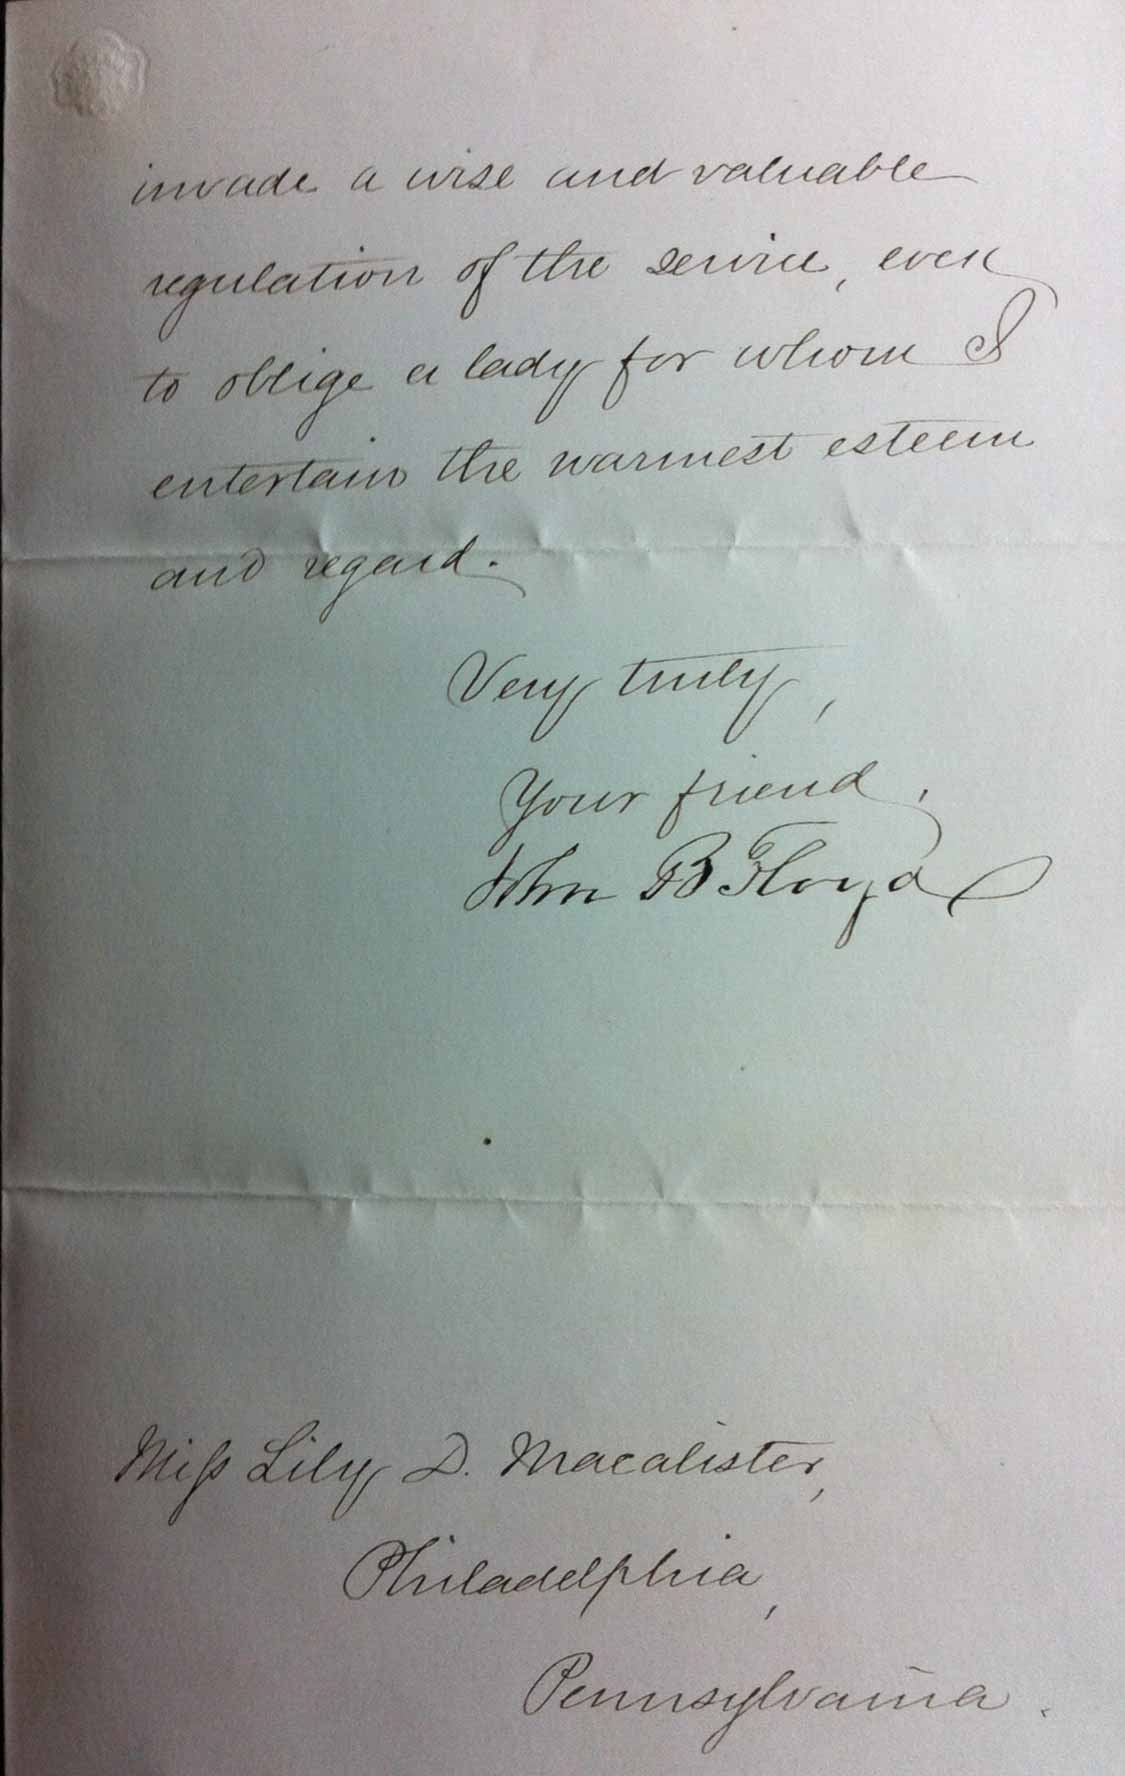 invade a wise and valuable
regulation of the service, even
to oblige a lady for whom I
entertain the warmest esteem
and regard.
Very truly,
Your friend,
John B Floyd
Miss Lily D. Macalister,
Philadelphia,
Pennsylvania.